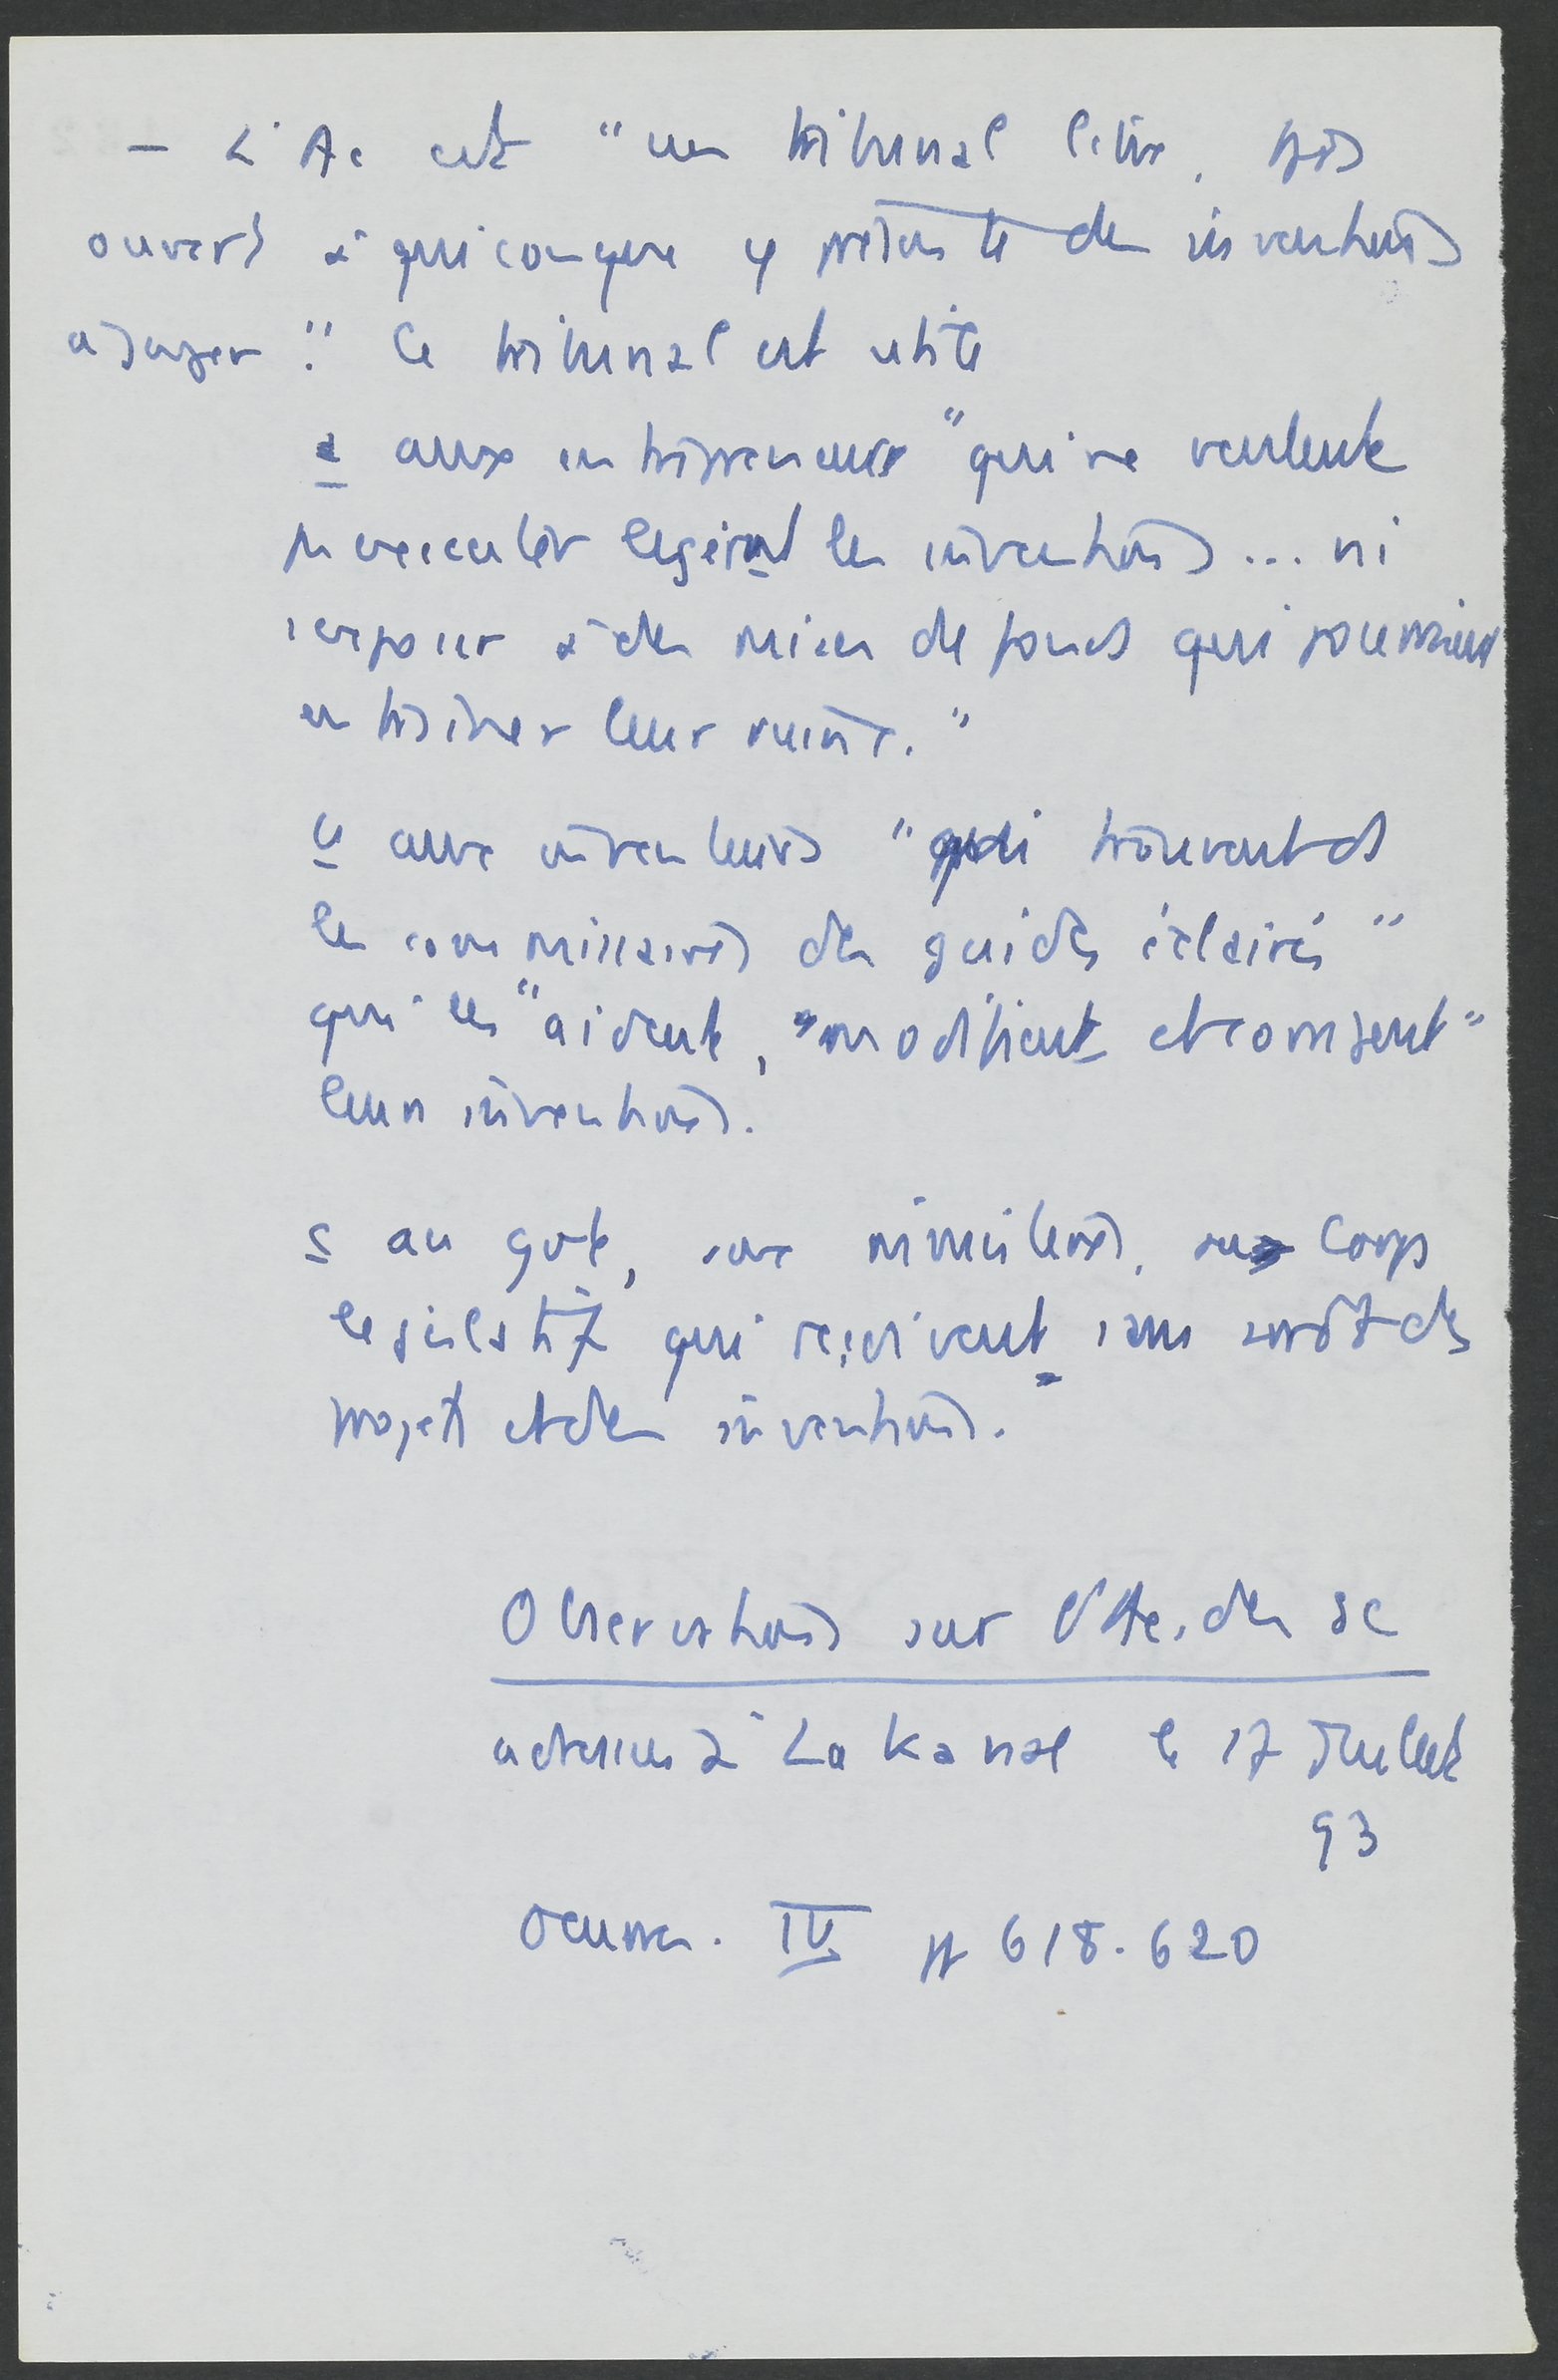 - L'Ac est "un tribunal libre, tjrs
ouvert à quiconque y présente des inventions
à juger". Ce tribunal est utile
a aux entrepreneurs "qui ne veulent
pr exécuter légèrmt les inventions... ni
s'exposer à des mises de fonds qui pourraient
entraîner leur ruine."
b aux inventeurs "qui trouvent ds
les commissaires des guides éclairés"
qui les "aident, "modifient et corrigent"
leurs inventions.
c au gvt, aux ministères, au Corps
législatif qui reçoivent sans arrêt des
projets et des inventions.
Observations sur l'Ac. des sc
adressées à Lakanal le 17 Juillet
93
Oeuvres. IV pp 618-620